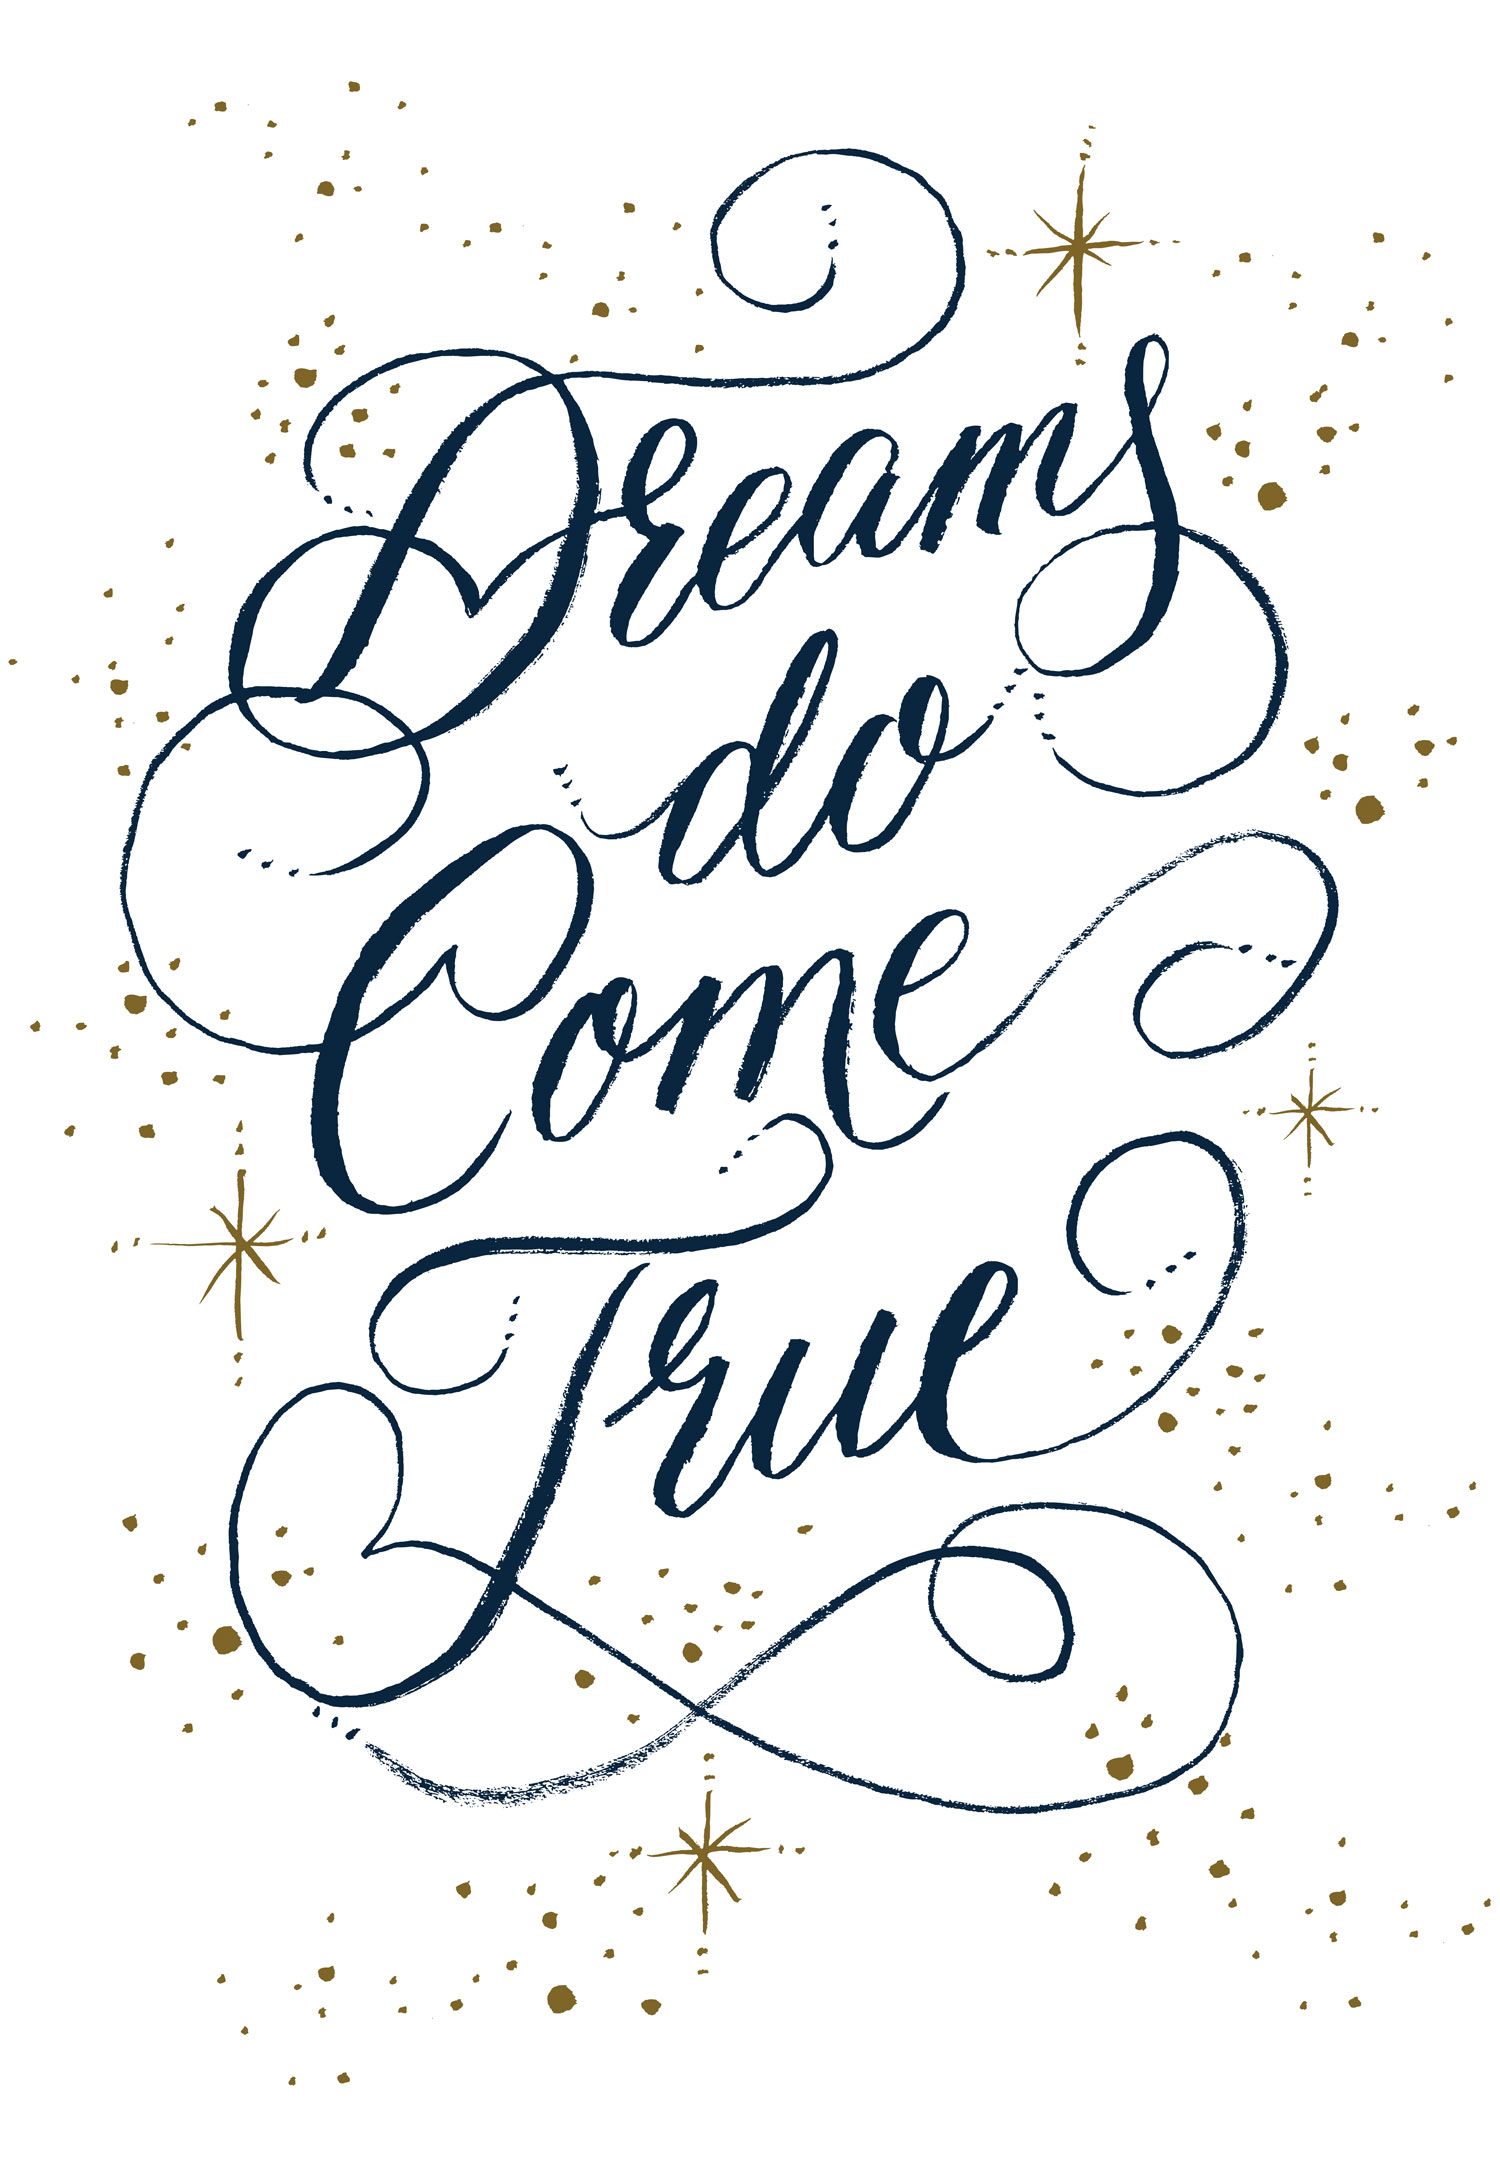 Dreams
do
Come
True